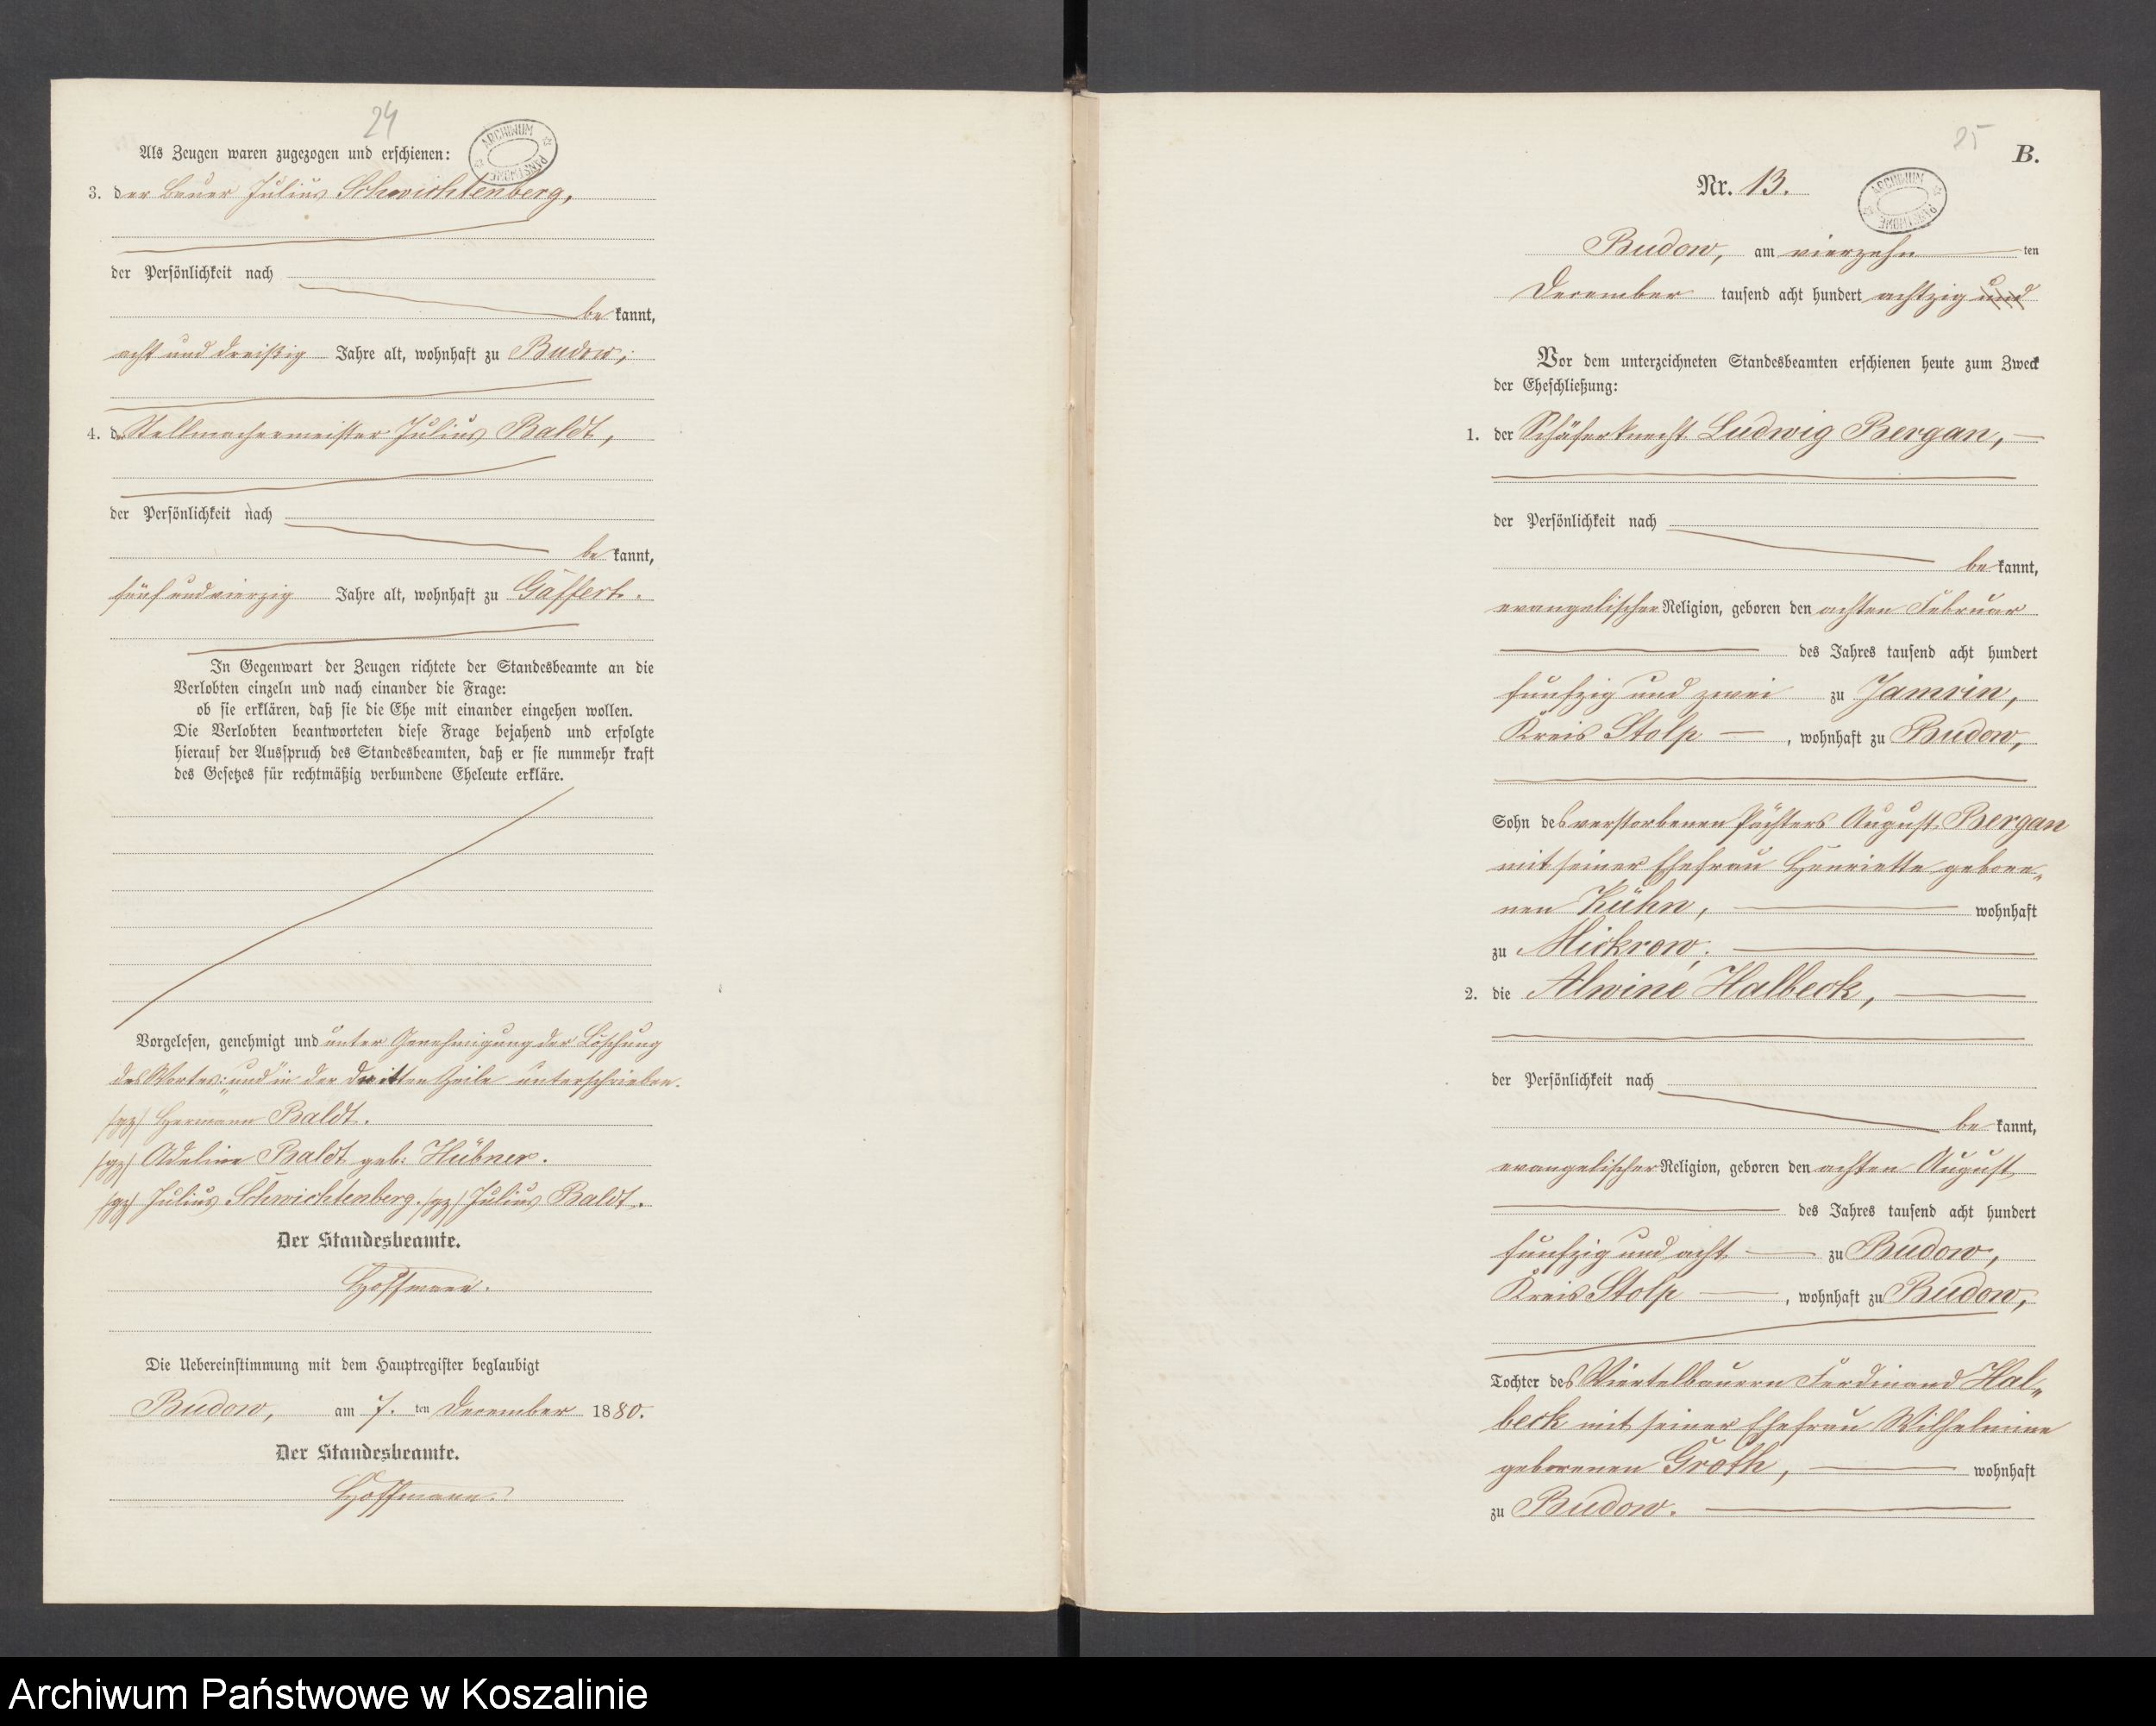 24
ARCHIWUM PAŃSTWOWE
Als Zeugen waren zugezogen und erschienen:
3. der Bauer Julius Schwichtenberg,
der Persönlichkeit nach
be kannt,
acht und dreißig Jahre alt, wohnhaft zu Budow,
4. der Stellmachermeister Julius Baldt,
der Persönlichkeit nach
be kannt,
fünf und vierzig Jahre alt, wohnhaft zu Gaffert.
In Gegenwart der Zeugen richtete der Standesbeamte an die
Verlobten einzeln und nach einander die Frage:
ob sie erklären, daß sie die Ehe mit einander eingehen wollen.
Die Verlobten beantworteten diese Frage bejahend und erfolgte
hierauf der Ausspruch des Standesbeamten, daß er sie nunmehr kraft
des Gesetzes für rechtmäßig verbundene Eheleute erkläre.
Vorgelesen, genehmigt und unter Genehmigung der Löschung
des Wortes: „und" in der dritten Zeile unterschrieben.
/gz/ Hermann Baldt.
/gz/ Adeline Baldt geb: Hübner.
/gz/ Julius Schwichtenberg. /gz/ Julius Baldt.
Der Standesbeamte.
Hoffmann.
Die Uebereinstimmung mit dem Hauptregister beglaubigt
Budow, am 7. ten December 1880.
Der Standesbeamte.
Hoffmann.
25
B.
Nr. 13.
ARCHIWUM PAŃSTWOWE
Budow, am vierzehn ten
December tausend acht hundert achtzig und
Vor dem unterzeichneten Standesbeamten erschienen heute zum Zweck
der Eheschließung:
1. der Schäferknecht Ludwig Bergan,
der Persönlichkeit nach
be kannt,
evangelischer Religion, geboren den achten Februar
des Jahres tausend acht hundert
funfzig und zwei zu Jamrin,
Kreis Stolp, wohnhaft zu Budow,
Sohn des verstorbenen Pächters August Bergan
mit seiner Ehefrau Henriette gebore„
nen Kühn, wohnhaft
zu Mickrow.
2. die Alwine Halbeck,
der Persönlichkeit nach
be kannt,
evangelischer Religion, geboren den achten August
des Jahres tausend acht hundert
funfzig und acht zu Budow,
Kreis Stolp, wohnhaft zu Budow,
Tochter des Viertelbauern Ferdinand Hal„
beck mit seiner Ehefrau Wilhelmine
geborenen Groth, wohnhaft
zu Budow.
Archiwum Państwowe w Koszalinie